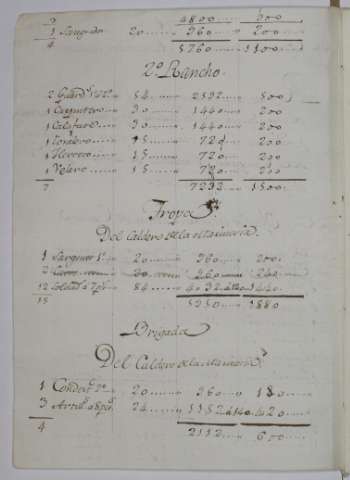 3 4800 900
1 Sangrador 20 960 200
4 5760 1100
2º Rancho.
2 Guard.s 54 2592 500
1 Carpintero 30 1440 200
1 Calafate 30 1440 200
1 Tonelero 15 720 200
1 Herrero 15 720 200
1 Velero 15 720 200
7 1500
Tropa
Del Caldero de la Marinería.
1 Sargento 1º 20 960 200
2 20 260 240
12 Soldad.s a 7 p.s 84 4032 á 120 1440
15 1880
Brigada
Del Caldero de la Marinería
1 Condest.e 2º 20 960 180
3 Artill.s a 8 p.s 24 1152 á 140 420
4 2112 600